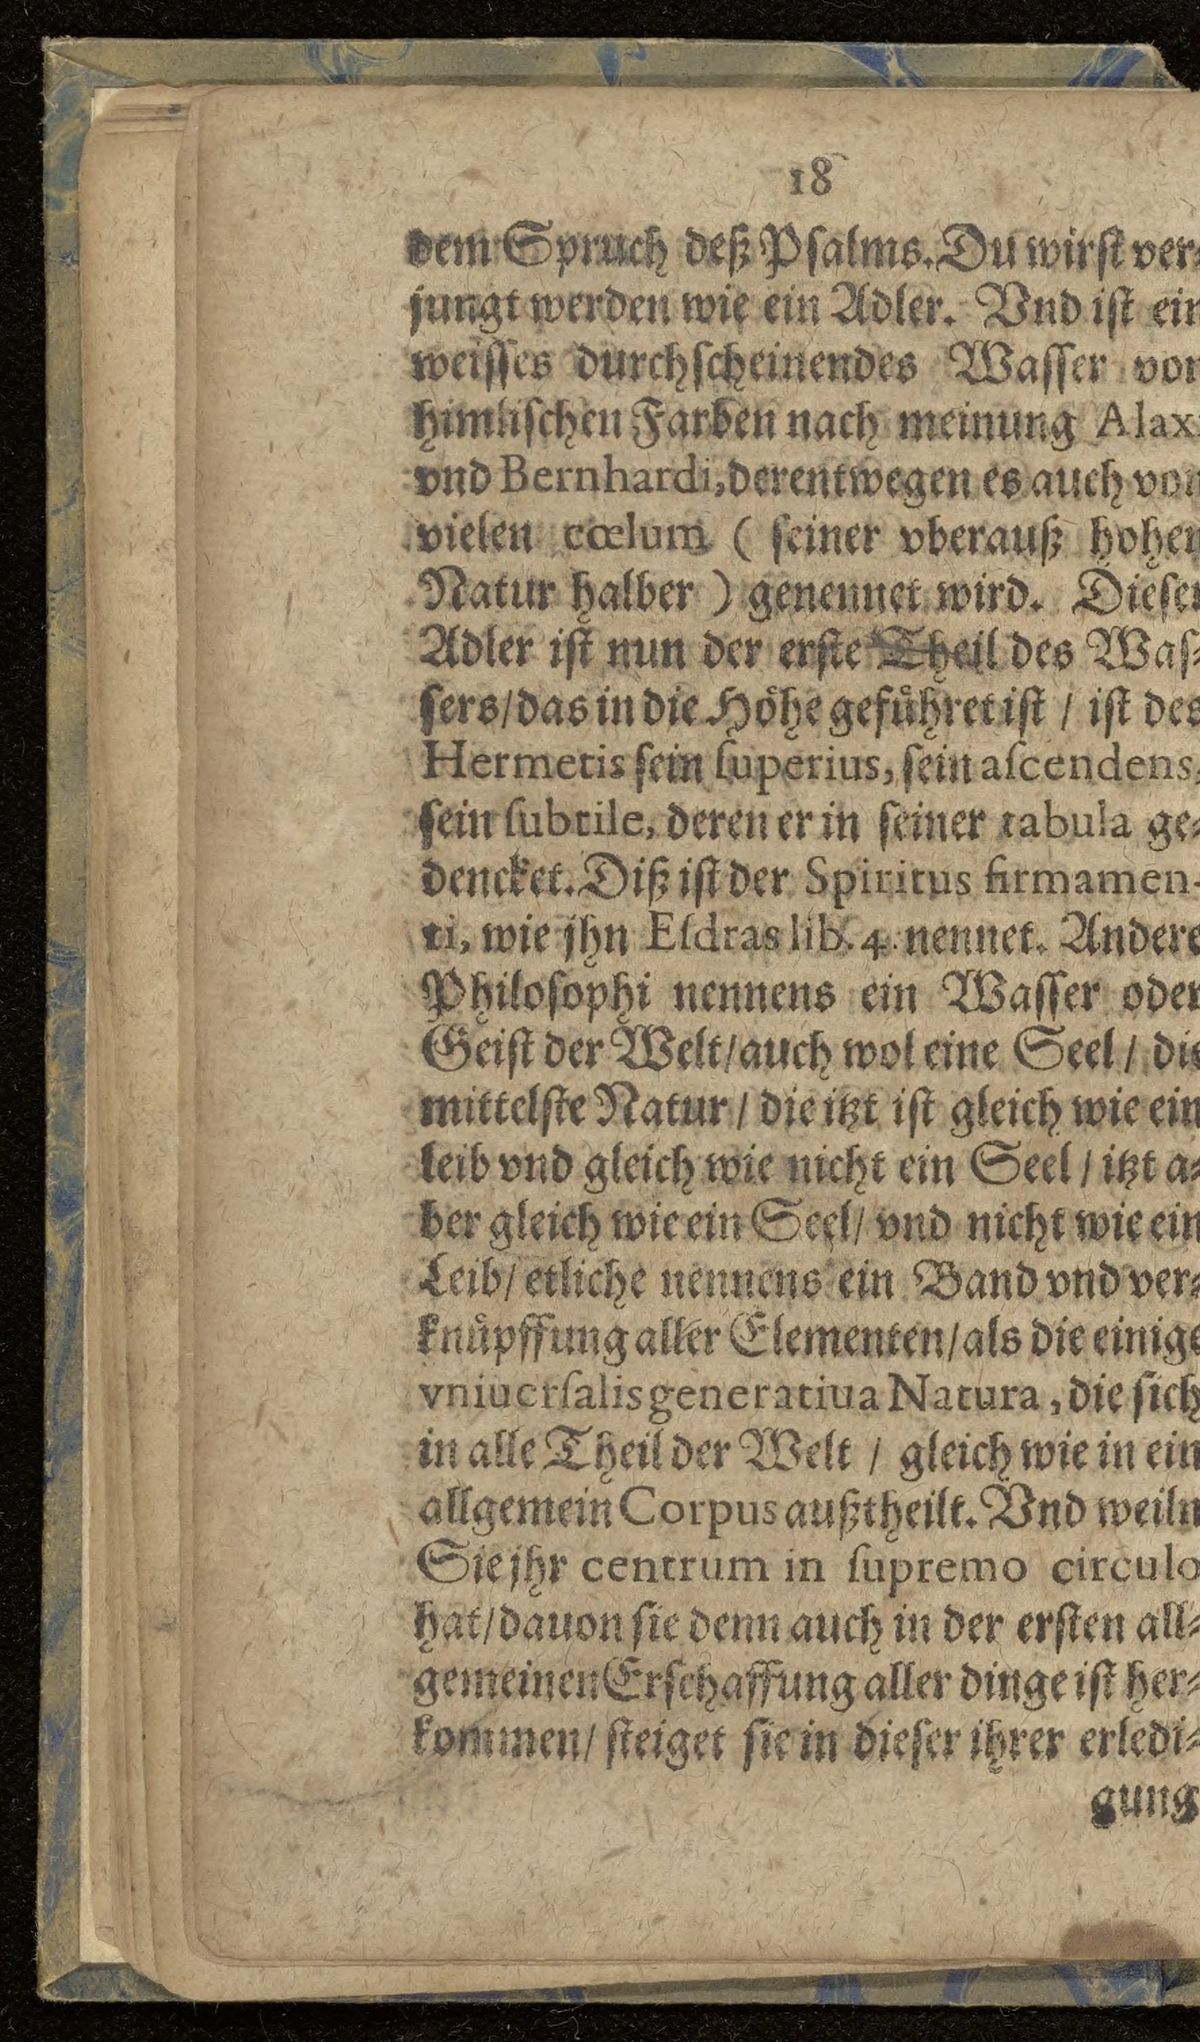 18
dem Spruch deß Psalms. Du wirst ver⸗
jungt werden wie ein Adler. Vnd ist ein
weisses durchscheinendes Wasser von
himlischen Farben nach meinung Alax.
vnd Bernhardi, derentwegen es auch von
vielen cœlum ( seiner vberauß hohen
Natur halber ) genennet wird. Dieser
Adler ist nun der erste Theil des Was⸗
sers/ das in die Höhe geführet ist / ist des
Hermetis sein ſuperius, sein aſcendens,
sein ſubtile, deren er in seiner tabula ge⸗
dencket. Diß ist der Spiritus firmamen-
ti, wie jhn Eſdras lib. 4. nennet. Andere
Philosophi nennens ein Wasser oder
Geist der Welt/ auch wol eine Seel / die
mittelste Natur / die itzt ist gleich wie ein
leib vnd gleich wie nicht ein Seel / itzt a⸗
ber gleich wie ein Seel/ vnd nicht wie ein
Leib/ etliche nennens ein Band vnd ver⸗
knüpffung aller Elementen/ als die einige
vniuerſalis generatiua Natura, die sich
in alle Theil der Welt / gleich wie in ein
allgemein Corpus außtheilt. Vnd weiln
Sie jhr centrum in ſupremo circulo
hat/ dauon sie denn auch in der ersten all⸗
gemeinen Erschaffung aller dinge ist her⸗
kommen/ steiget sie in dieser ihrer erledi⸗
gung